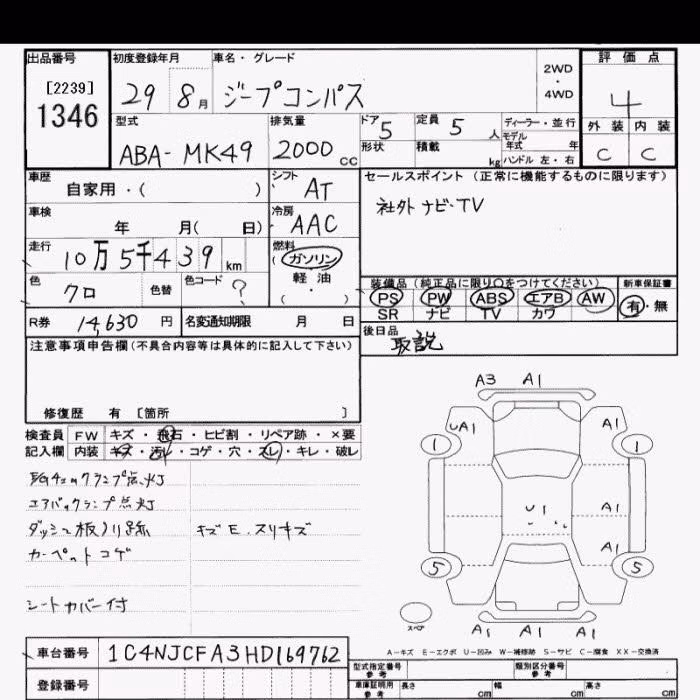 出品番号 初度登録年月 車名・グレード 評価点
[2239] 2WD・4WD
1346 29 8月 ジープコンパス 4
型式 排気量 ドア 5 定員 5人 ディーラー・並行 外装 内装
モデル年式 年
ABA-MK49 2000cc 形状 積載 kg ハンドル 左・右 C C
車歴 シフト セールスポイント(正常に機能するものに限ります)
自家用・( ) AT 社外 ナビ・TV
車検 冷房
年 月( 日) AAC
走行 燃料
10万5千439km (ガソリン
色 色替 色コード 軽油
クロ ? ・ ) 装備品(純正品に限り○をつけてください) 新車保証書
PS PW ABS エアB AW 有・無
SR ナビ TV カワ
R券 14,630円 名変通知期限 月 日 後日品
取説
注意事項申告欄(不具合内容等は具体的に記入して下さい)
修復歴 有 [箇所 ]
検査員 FW キズ・飛石・ヒビ割・リペア跡・×要
記入欄 内装 キズ・汚れ・コゲ・穴・スレ・キレ・破レ
エアバックランプ点灯
キズE.スリキズ
カーペットコゲ
シートカバー付
A3 A1
UA1 A1
1 1
U1 A1
A1
5 5
スペア
A1 A1 A1
A-キズ E-エクボ U-凹み W-補修跡 S-サビ C-腐食 XX-交換済
車台番号 1C4NJCFA3HD169762
型式指定番号 参考 類別区分番号 参考
登録番号 車庫証明用 参考 長さ cm 幅 cm 高さ cm